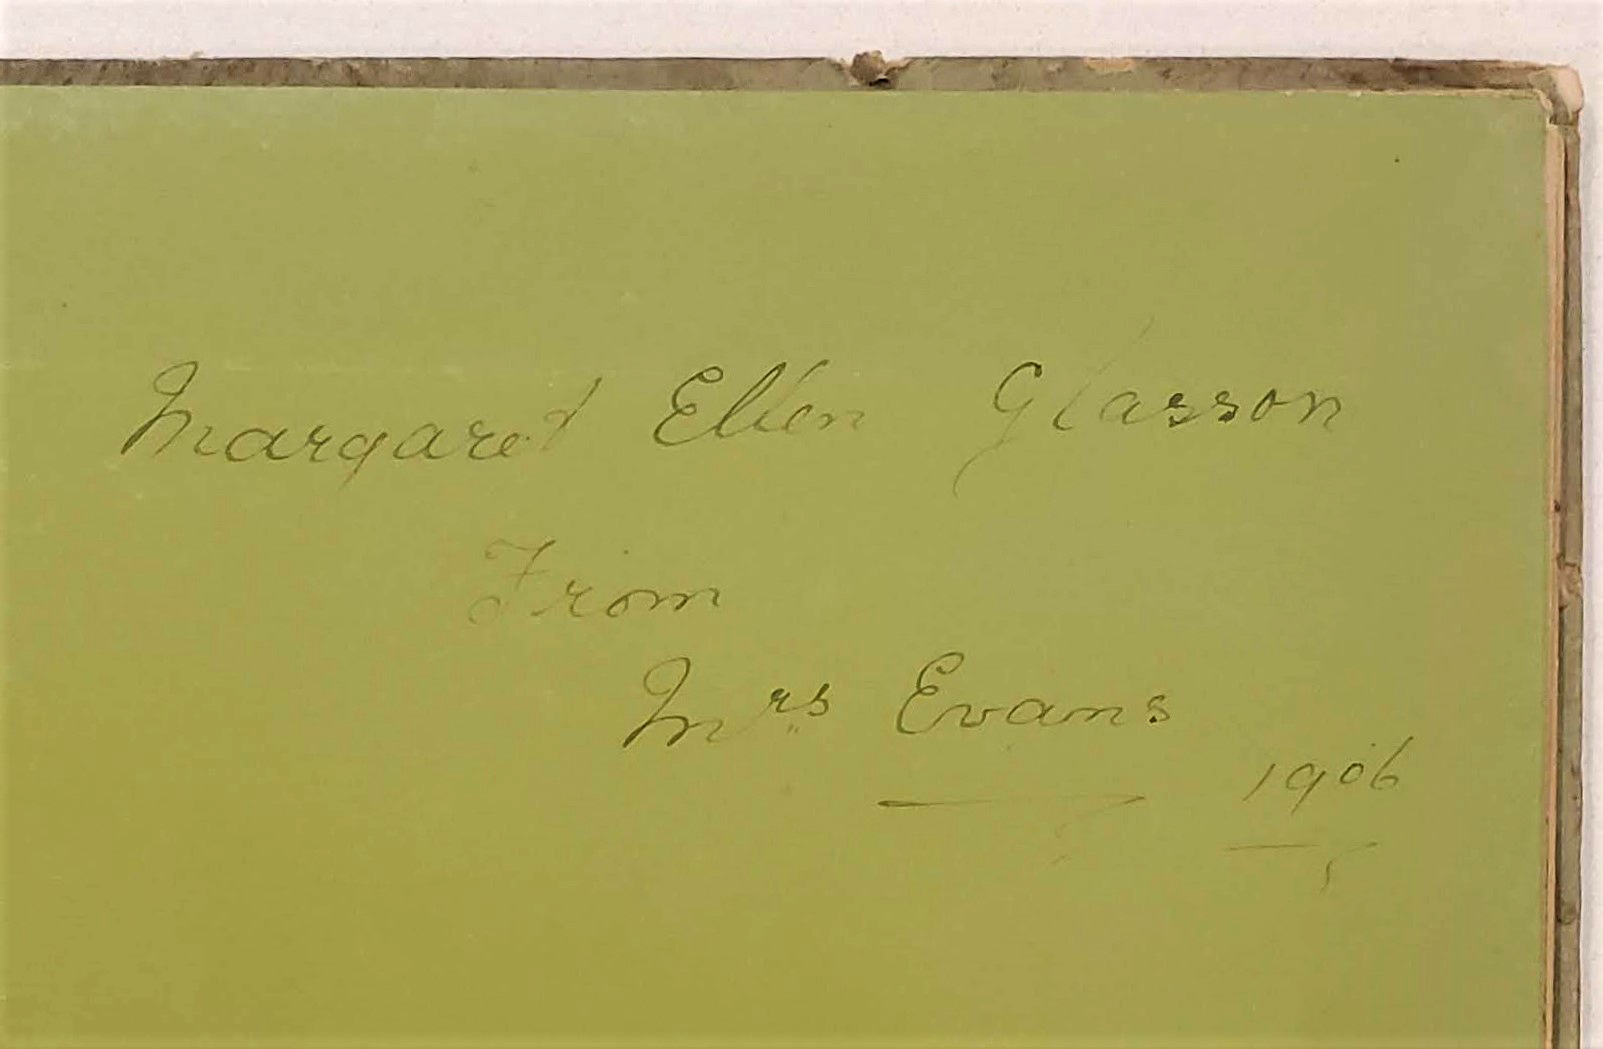 Margaret Ellen Glasson
From
Mrs Evans
1906